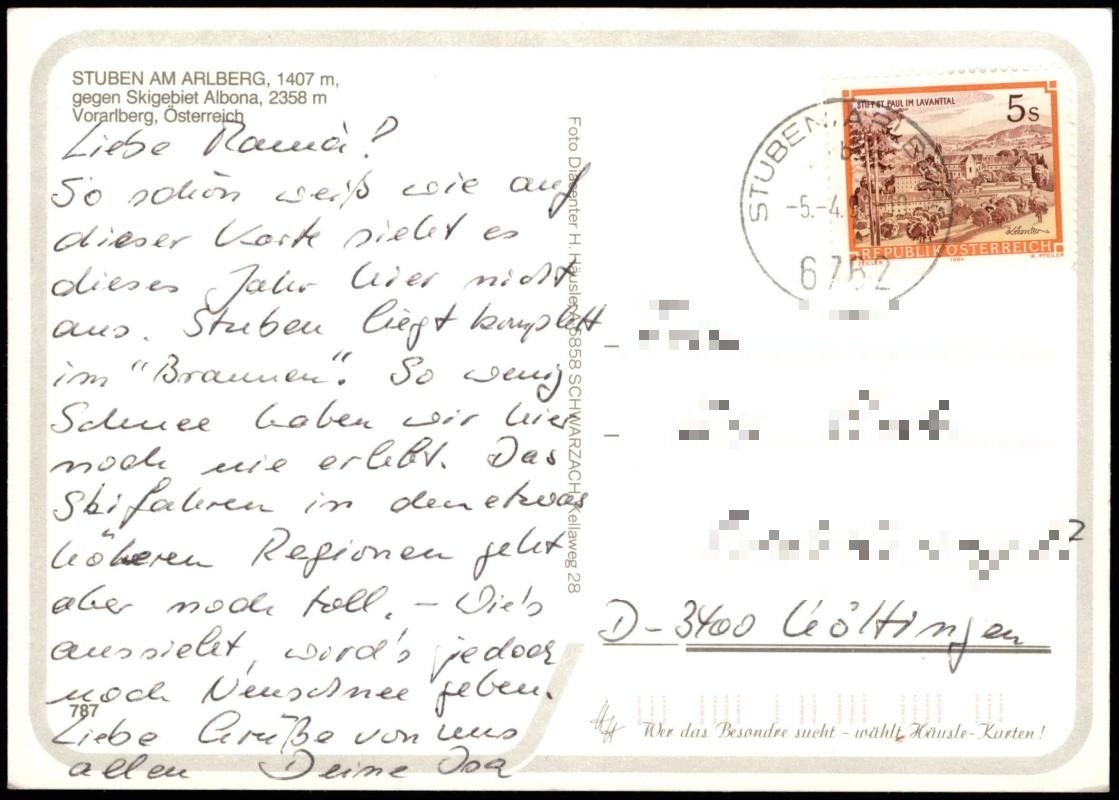 STUBEN AM ARLBERG, 1407 m,
gegen Skigebiet Albona, 2358 m
Vorarlberg, Österreich
Liebe Mamà!
So schön weiß wie auf
dieser Karte sieht es
dieses Jahr hier nicht
aus. Stuben liegt komplett
im "Braunen". So wenig
Schnee haben wir hier
noch nie erlebt. Das
Skifahren in den etwas
höheren Regionen geht
aber noch toll. – Wie's
aussieht, wird's jedoch
noch Neuschnee geben.
787
Liebe Grüße von uns
allen Deine Isa
Foto Diacenter H. Häusle A-6858 SCHWARZACH Kellaweg 28
STIFT ST. PAUL IM LAVANTTAL
5s
Kärnten
REPUBLIK ÖSTERREICH
ZEILLER 1984 W. PFEILER
STUBEN, ARLBERG
-5.-4.
6762
2
D-3400 Göttingen
HH Wer das Besondre sucht - wählt Häusle-Karten!